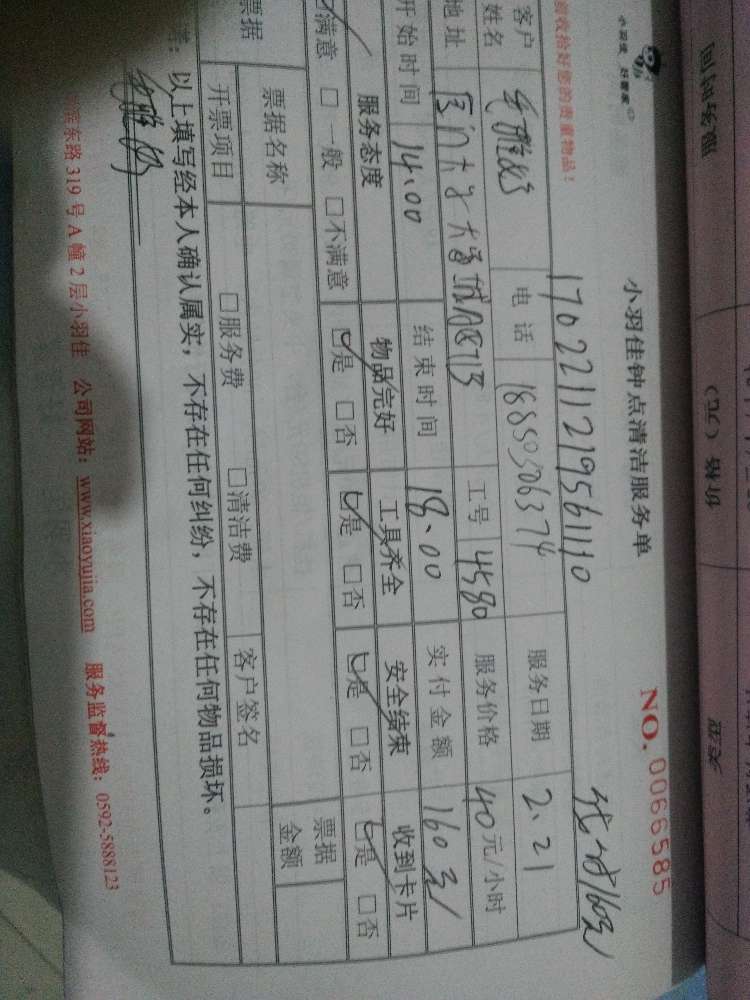 小羽佳 好管家
小羽佳钟点清洁服务单
NO. 0066585
收拾好您的贵重物品！
1702211219561110
客户姓名 电话 18850306374 服务日期 2.21
地址 工号 4580 服务价格 40元/小时
开始时间 14.00 结束时间 18.00 实付金额 160元
服务态度 物品完好 工具齐全 安全结束 收到卡片
☑满意 □一般 □不满意 ☑是 □否 ☑是 □否 ☑是 □否 ☑是 □否
票据 票据名称 票据金额
开票项目 □服务费 □清洁费 客户签名
以上填写经本人确认属实，不存在任何纠纷，不存在任何物品损坏。
滨东路 319 号 A 幢 2 层小羽佳 公司网站：www.xiaoyujia.com 服务监督热线：0592-5888123
服务时间
价格（元）